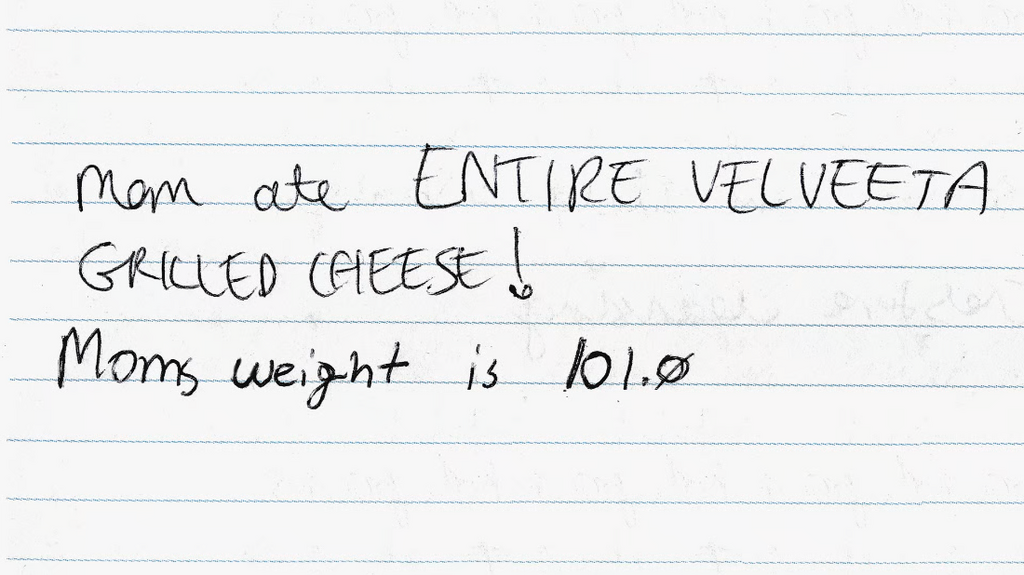 Mom ate ENTIRE VELVEETA
GRILLED CHEESE!
Moms weight is 101.0